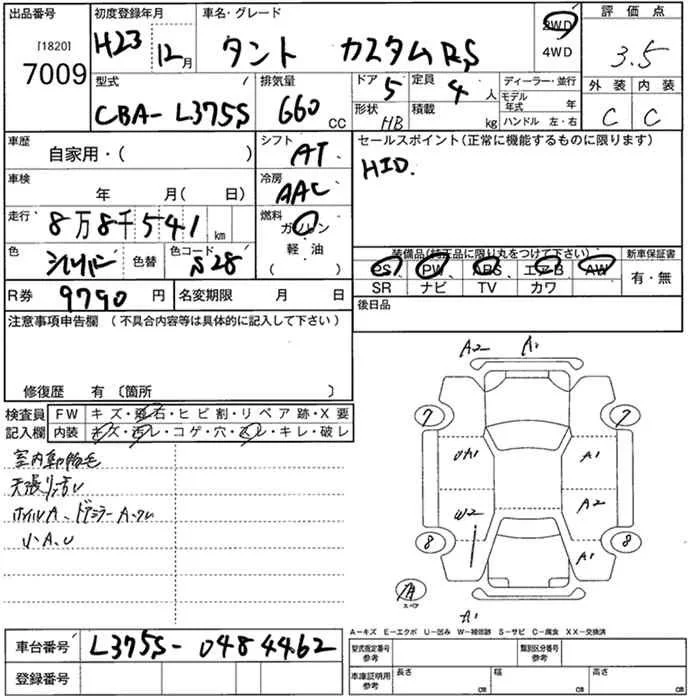 出品番号
[1820]
7009
初度登録年月
H23 12月
車名・グレード
タント カスタムRS
2WD
4WD
評価点
3.5
型式
CBA-L375S
排気量
660 CC
ドア 5
定員 4 人
形状 HB
積載 kg
ディーラー・並行
モデル年式 年
ハンドル 左・右
外装 内装
C C
車歴
自家用・( )
シフト
AT
セールスポイント(正常に機能するものに限ります)
HID.
車検
年 月( 日)
冷房
AAC
走行
8万8千541 km
燃料
ガソリン
軽・油
( )
色
シルバー
色替
色コード
S28
装備品(純正品に限り丸をつけて下さい)
PS PW ABS エアB AW
SR ナビ TV カワ
新車保証書
有・無
R券 9790 円
名変期限 月 日
後日品
注意事項申告欄(不具合内容等は具体的に記入して下さい)
修復歴 有〔箇所 〕
検査員記入欄
FW キズ・飛石・ヒビ割・リペア跡・X要
内装 キズ・汚レ・コゲ・穴・スレ・キレ・破レ
室内動物毛
天張り汚レ
ホイルA、ドアミラーA、ワレ
小A、U
A2 A1
7 7
UA1 A1
W2 A2
8 8
A1
スペア
A1
A-キズ E-エクボ U-凹み W-補修跡 S-サビ C-腐食 XX-交換済
車台番号 L375S-0484462
登録番号
型式指定番号 参考
類別区分番号 参考
車庫証明用 参考
長さ cm
幅 cm
高さ cm